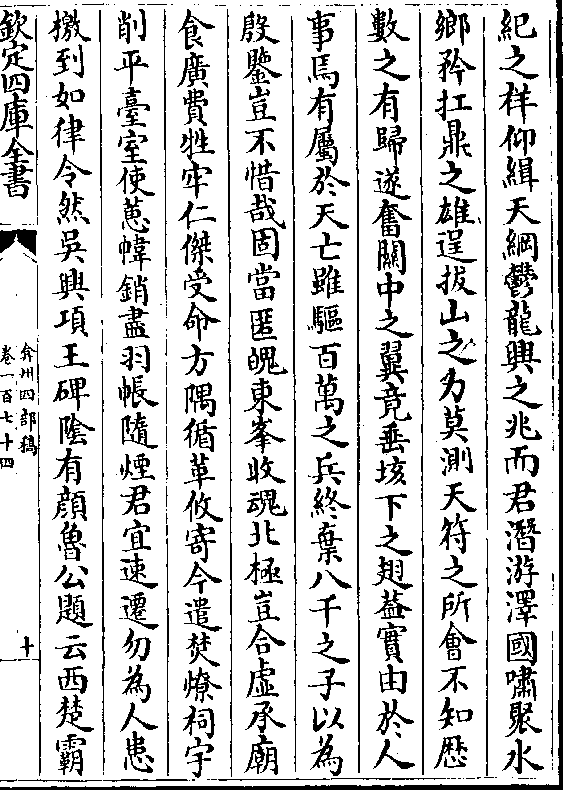 紀之祥仰緝天綱鬱龍興之兆而君潛游澤國嘯聚水
鄉矜扛鼎之雄逞拔山之力莫測天符之所會不知歴
數之有歸遂奮關中之翼竟垂垓下之翅葢實由於人
事焉有屬於天亡雖驅百萬之兵終棄八千之子以為
殷鑒豈不惜哉固當匿魄東峯收魂北極豈合虛承廟
食廣費牲牢仁傑受命方隅循革攸寄今遣焚燎祠宇
削平臺室使蕙幃銷盡羽帳隨煙君宜速遷勿為人患
檄到如律令然吳興項王碑隂有顔魯公題云西楚霸
欽定四庫全書
弇州四部稿
卷一百七十四
十